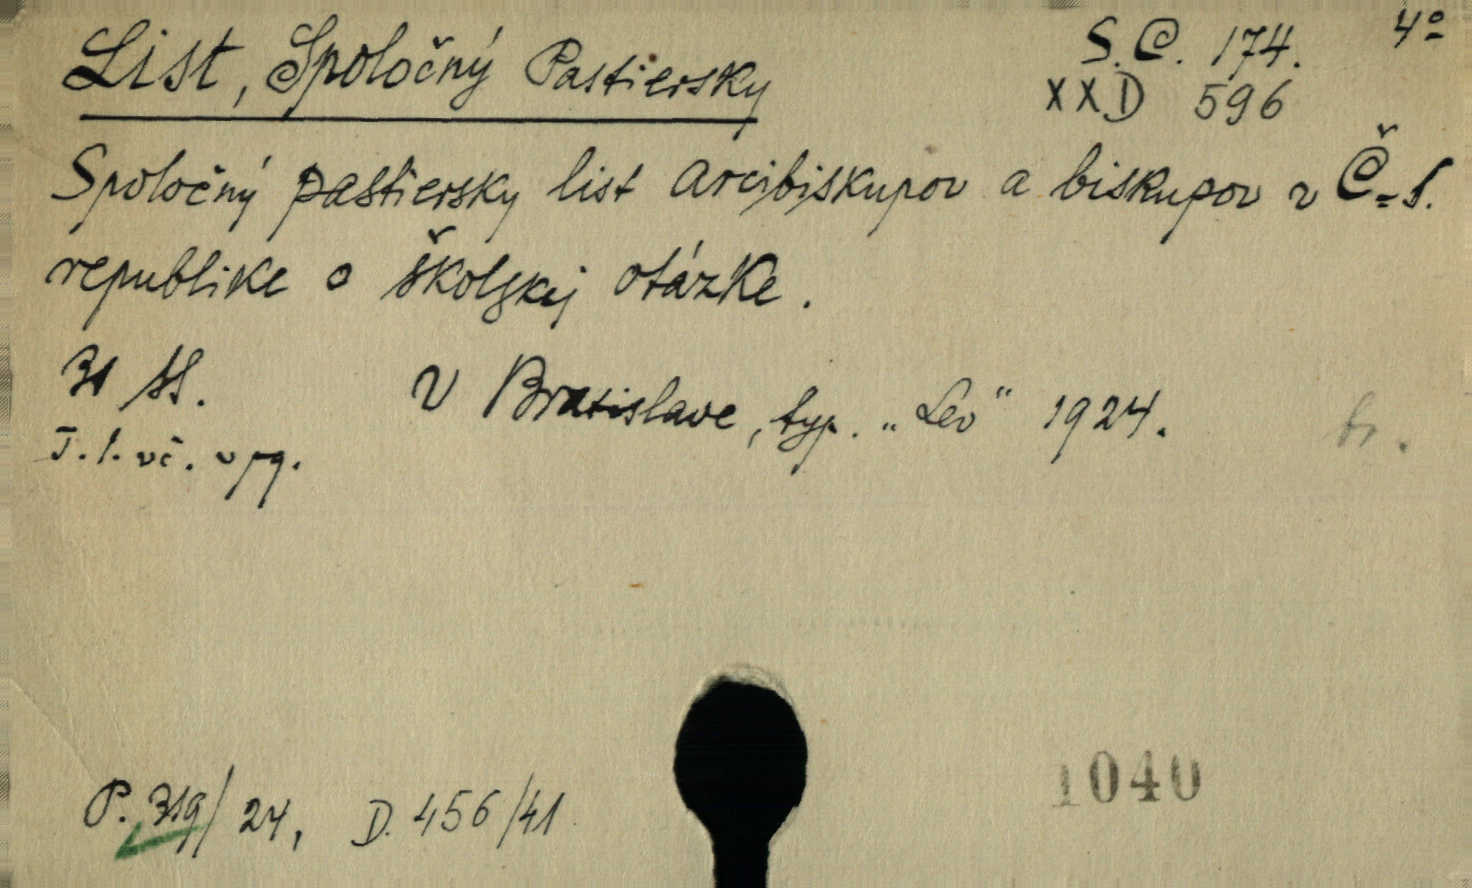 List, Spoločný Pastiersky
S.C. 174. 4º
XXD 596
Spoločný pastiersky list arcibiskupov a biskupov v Č=S.
republike o školskej otázke.
31 SS. V Bratislave, typ. „Lev" 1924. br.
T. l. vč. v pg.
P. 319/24, D. 456/41
1040